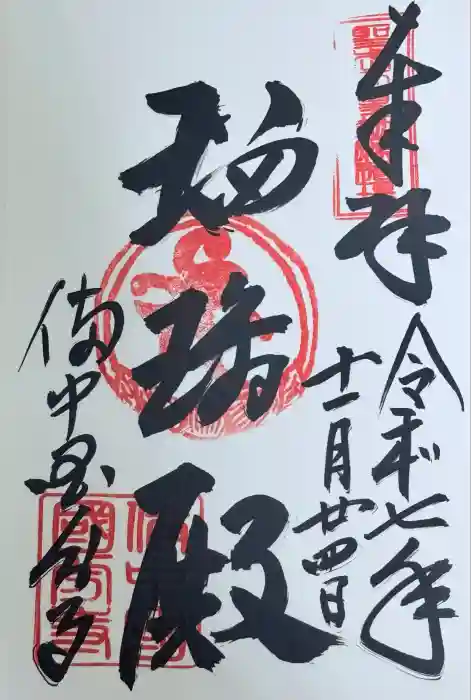 奉拝
令和七年
十一月廿四日
瑠璃殿
備中国分寺